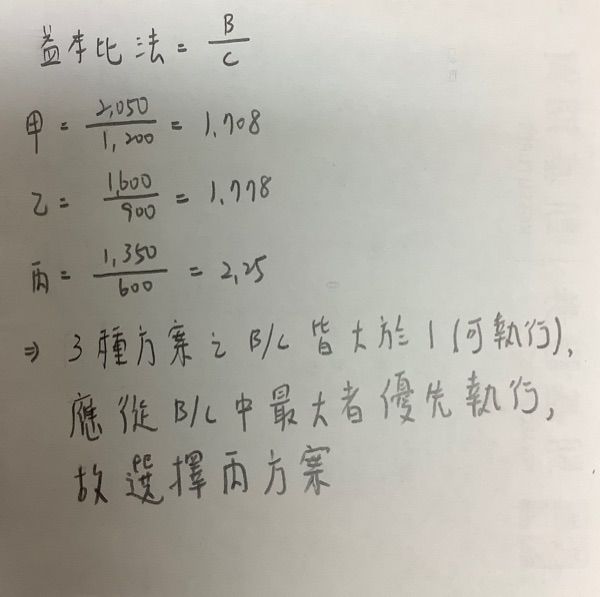 益本比法 = B/C
甲 = 2,050/1,200 = 1.708
乙 = 1,600/900 = 1.778
丙 = 1,350/600 = 2.25
⇒ 3種方案之 B/C 皆大於1(可執行),
應從B/C中最大者優先執行,
故選擇丙方案